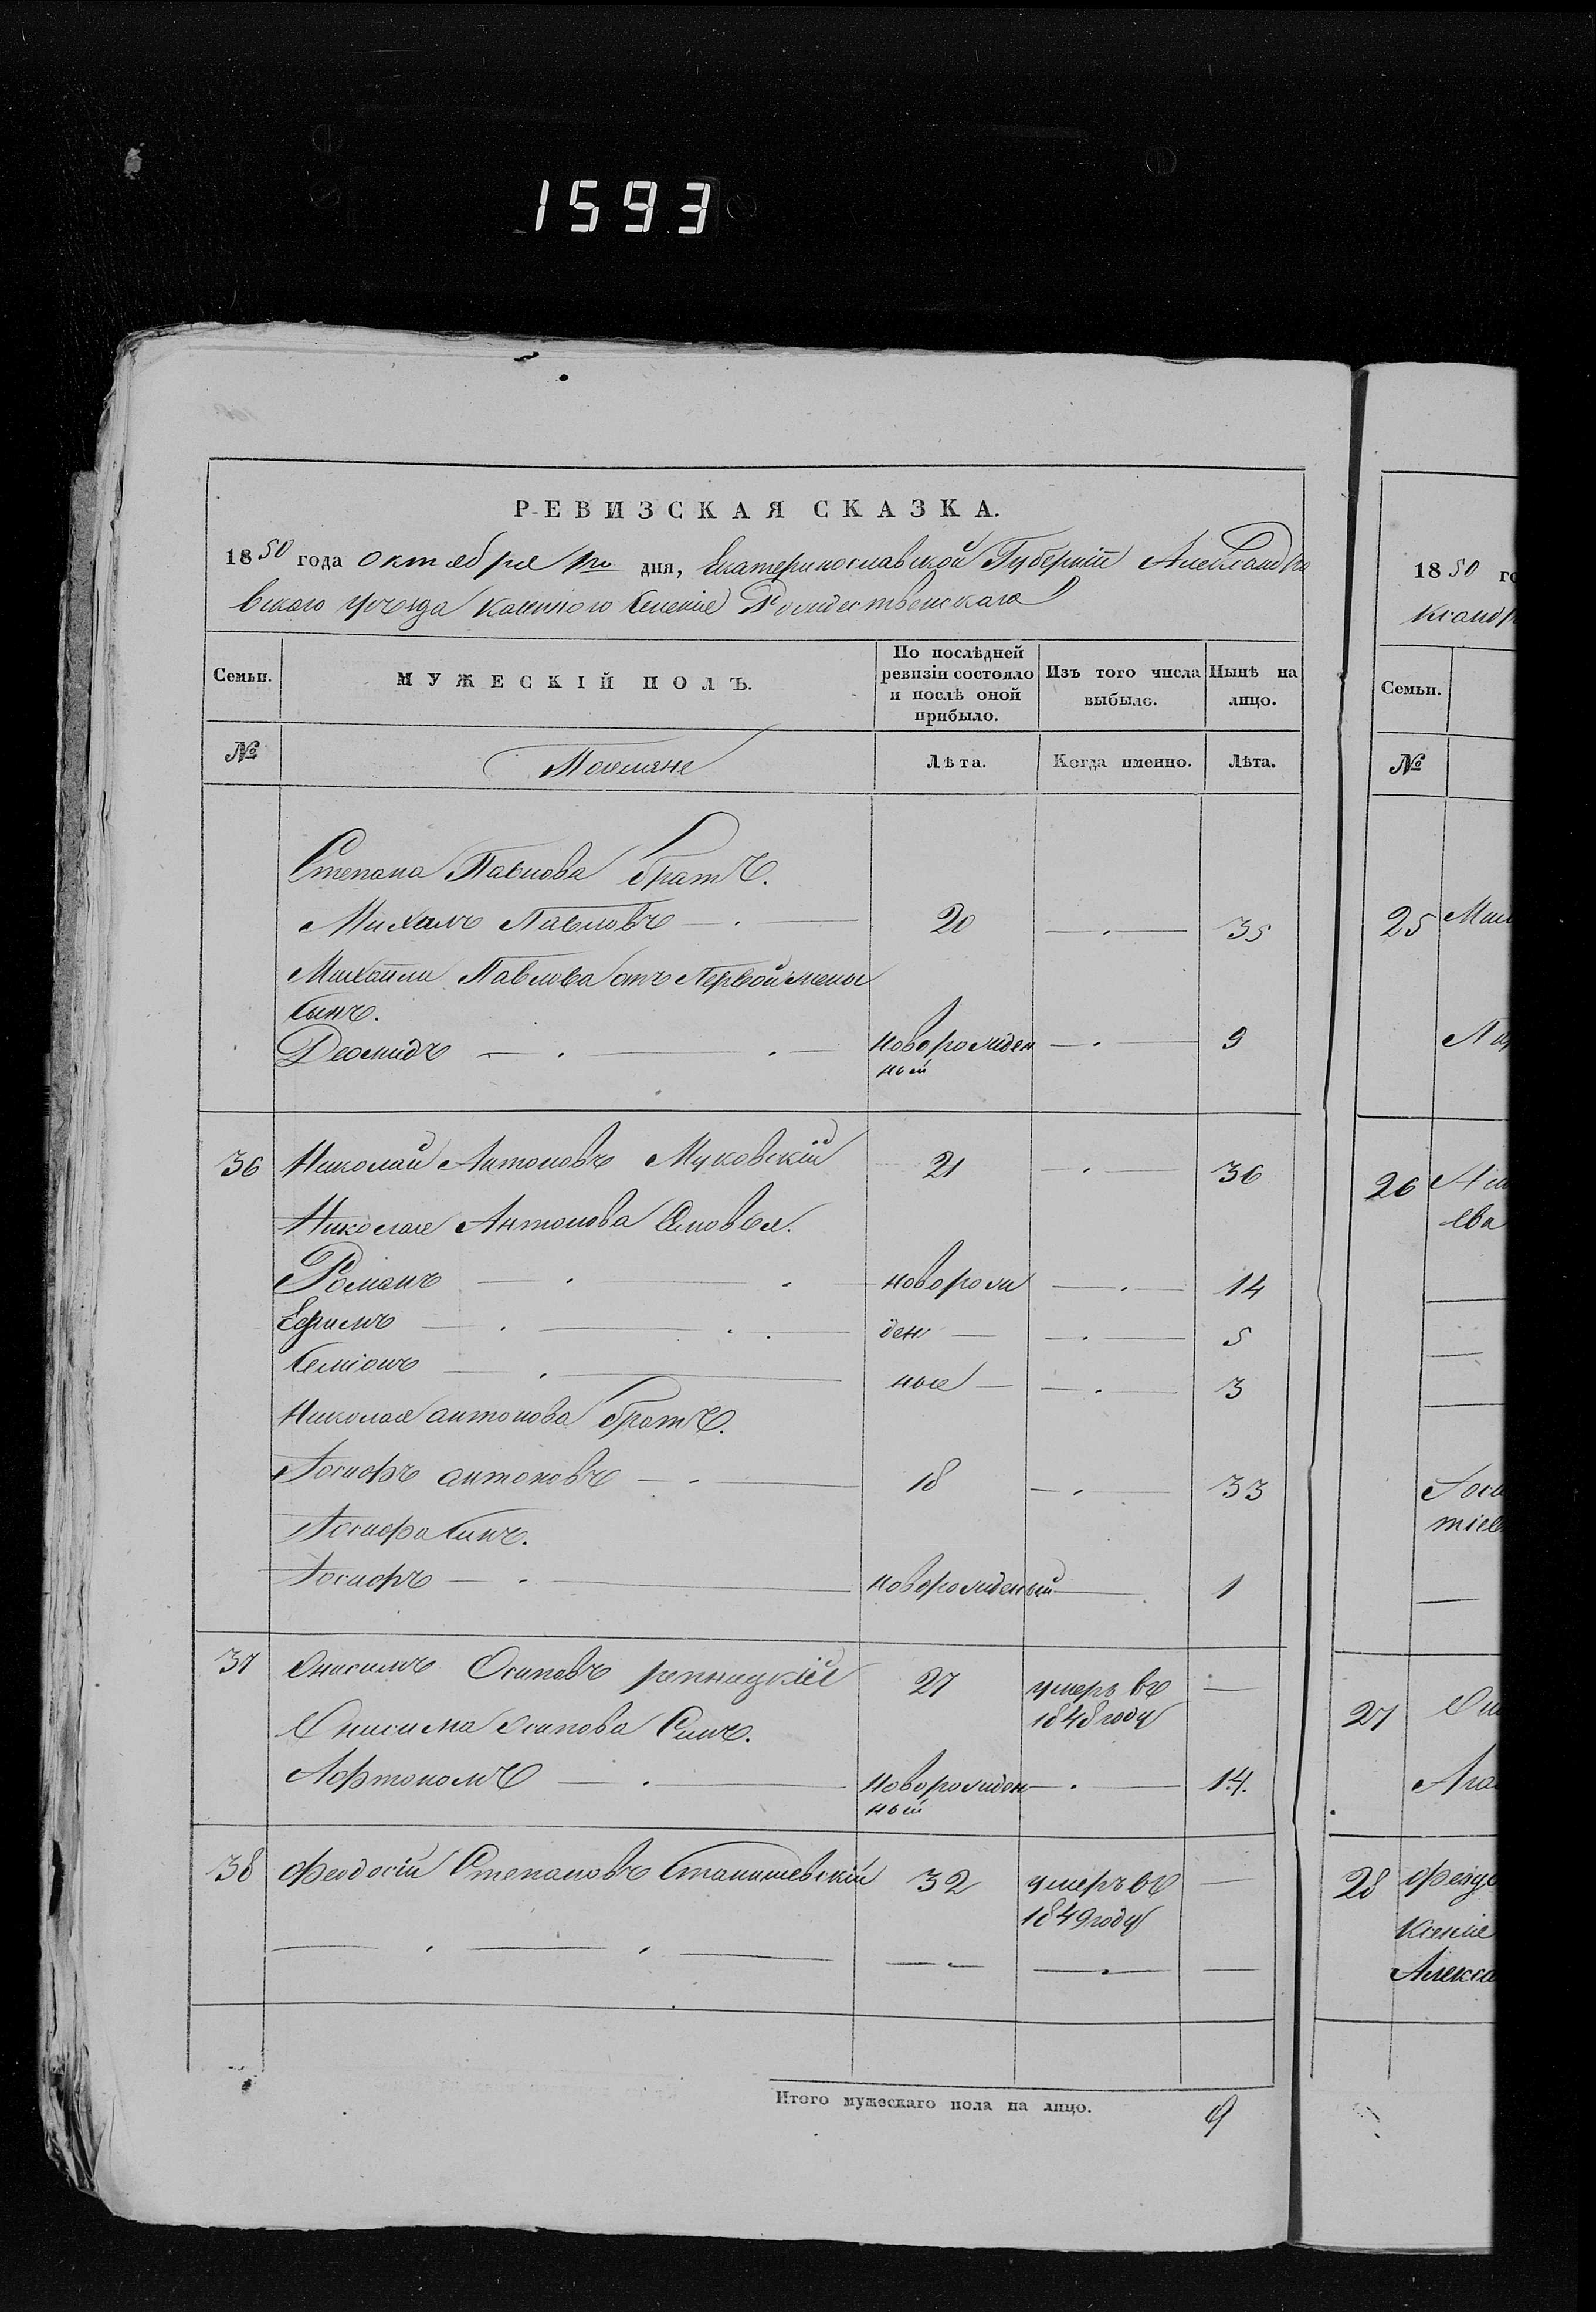 1593
РЕВИЗСКАЯ СКАЗКА.
1850 года октября го дня, Екатеринославской Губерніи Александро
вскаго уезда казенного селенія Рождественскаго
Семьи. МУЖЕСКІЙ ПОЛЪ. По послѣдней ревизіи состояло и послѣ оной прибыло. Изъ того числа выбыло. Нынѣ на лицо.
№ Поселяне Лѣта. Когда именно. Лѣта.
Степана Павлова братъ.
Михаилъ Павловъ 20 35
Михаила Павлова отъ Первой жены
Сынъ.
Деомидъ новорожден
ный 9
36 Николай Антоновъ Муковскій 21 36
Николая Антонова Сыновья.
Романъ новорож 14
Ефимъ ден 5
Семіонъ ные 3
Николая антонова братъ.
Іосифъ антоновъ 18 33
Іосифа Сынъ.
Іосифъ новорожденый 1
37 Онисимъ Осиповъ репницкій 27 умеръ въ
1848 году
Онисима Осипова Сынъ.
Афтономъ Новорожден
ный 14.
38 Феодосій Степановъ Станишевскій 32 умеръ въ
1849 году
Итого мужескаго пола на лицо. 9
1850 го
ксандр
Семьи.
№
25
26
ева
27
28
Ксенія
Алекса